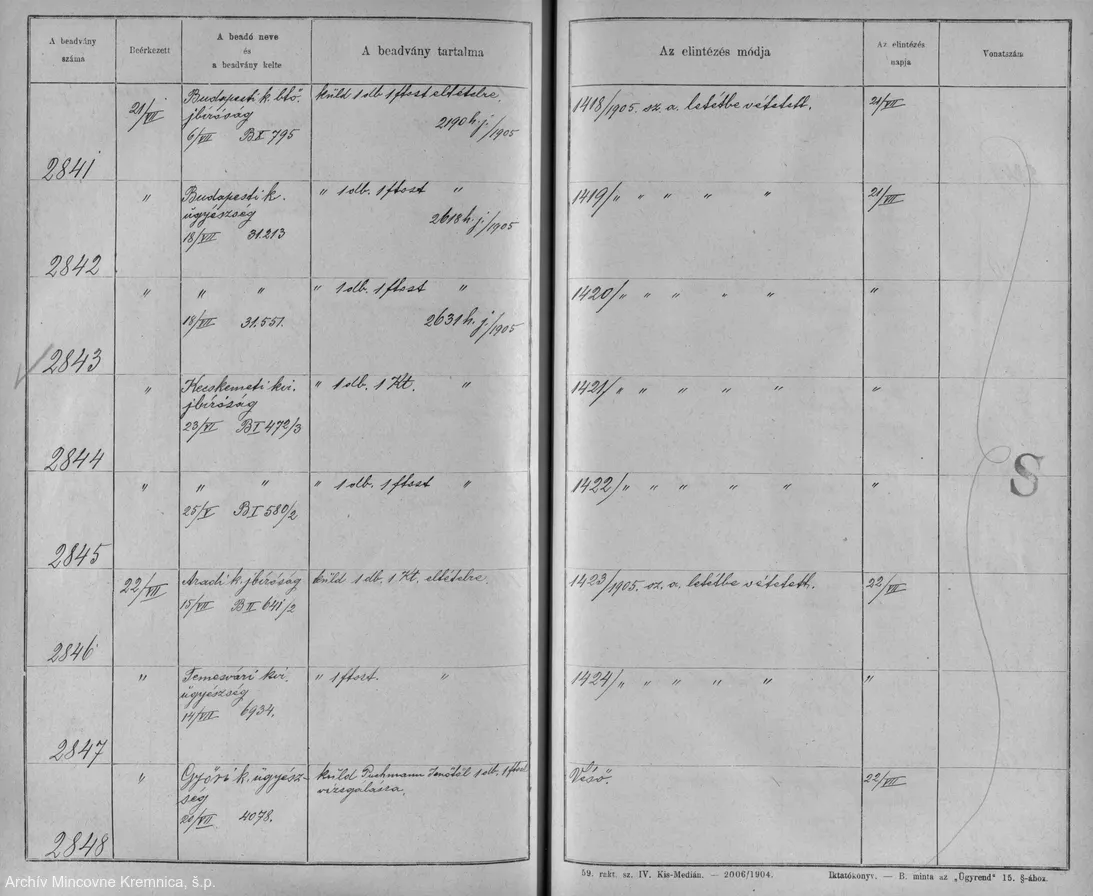 A beadvány száma
Beérkezett
A beadó neve és a beadvány kelte
A beadvány tartalma
Az elintézés módja
Az elintézés napja
Vonatszám
2841
21/VII
Budapesti k. btő.
jbíróság
6/VII BX 795
küld 1 db 1 ftost eltételre
2190 h. j./1905
1418/1905. sz. a. letétbe vétetett.
21/VII
2842
"
Budapesti k.
ügyészség
18/VII 31.213
" 1 db. 1 ftost "
2618 h. j./1905
1419/" " " " "
21/VII
2843
"
" "
18/VII 31.551.
" 1 db. 1 ftost "
2631 h. j./1905
1420/" " " " "
"
2844
"
Kecskeméti kir.
jbíróság
23/VI BI 472/3
" 1 db. 1 Kt. "
1421/" " " " "
"
2845
"
" "
25/V BI 580/2
" 1 db. 1 ftost "
1422/" " " " "
"
S
2846
22/VII
Aradi k. jbíróság
15/VII BII 641/2
küld 1 db. 1 Kt. eltételre.
1423/1905. sz. a. letétbe vétetett.
22/VII
2847
"
Temesvári kir.
ügyészség
14/VII 6934.
" 1 ftost. "
1424/" " " " "
"
2848
"
Győri k. ügyész-
ség
20/VII 4078.
küld Puchmann Jenőtől 1 db. 1 ftost
vizsgálásra.
Véső.
22/VII
59. rakt. sz. IV. Kis-Medián. — 2006/1904.
Iktatókönyv. — B. minta az „Ügyrend" 15. §-ához.
Archív Mincovne Kremnica, š.p.